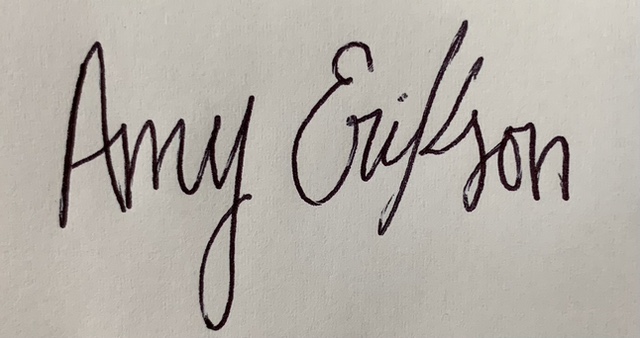 Amy Erikson